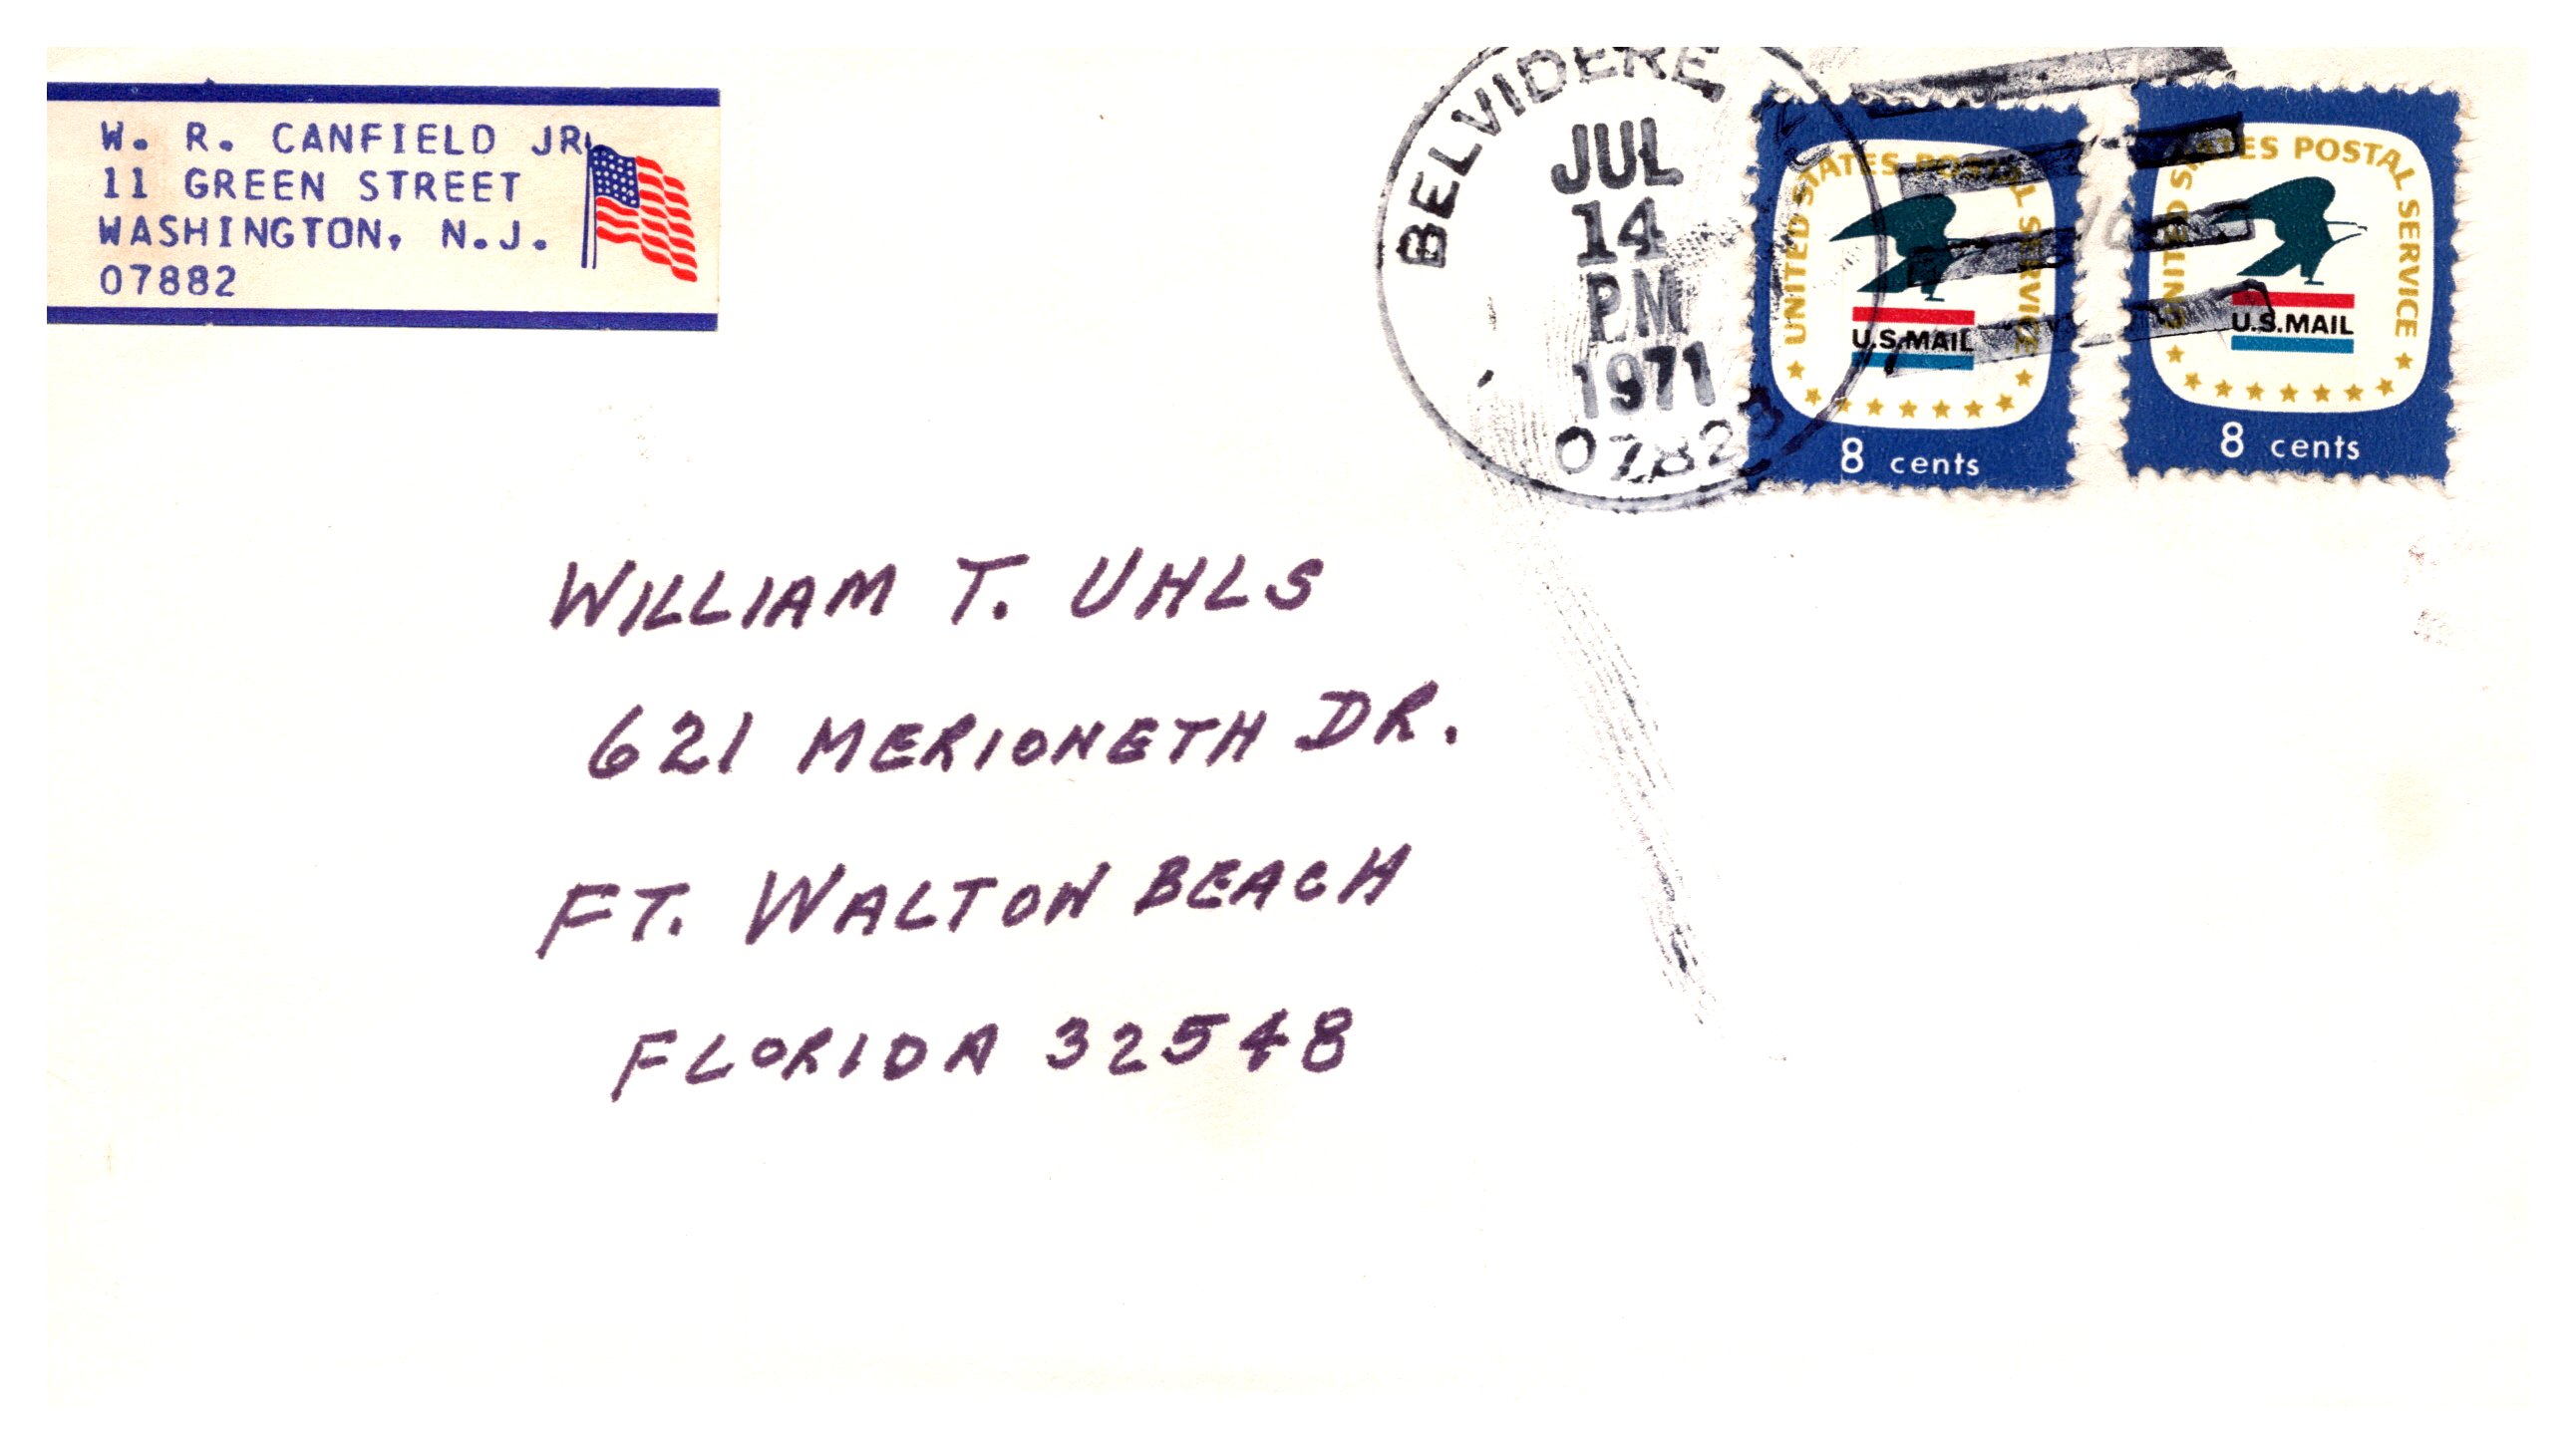 W. R. CANFIELD JR.
11 GREEN STREET
WASHINGTON, N.J.
07882
BELVIDERE
JUL
14
PM
1971
07823
UNITED STATES POSTAL SERVICE
U.S.MAIL
8 cents
UNITED STATES POSTAL SERVICE
U.S.MAIL
8 cents
WILLIAM T. UHLS
621 MERIONETH DR.
FT. WALTON BEACH
FLORIDA 32548